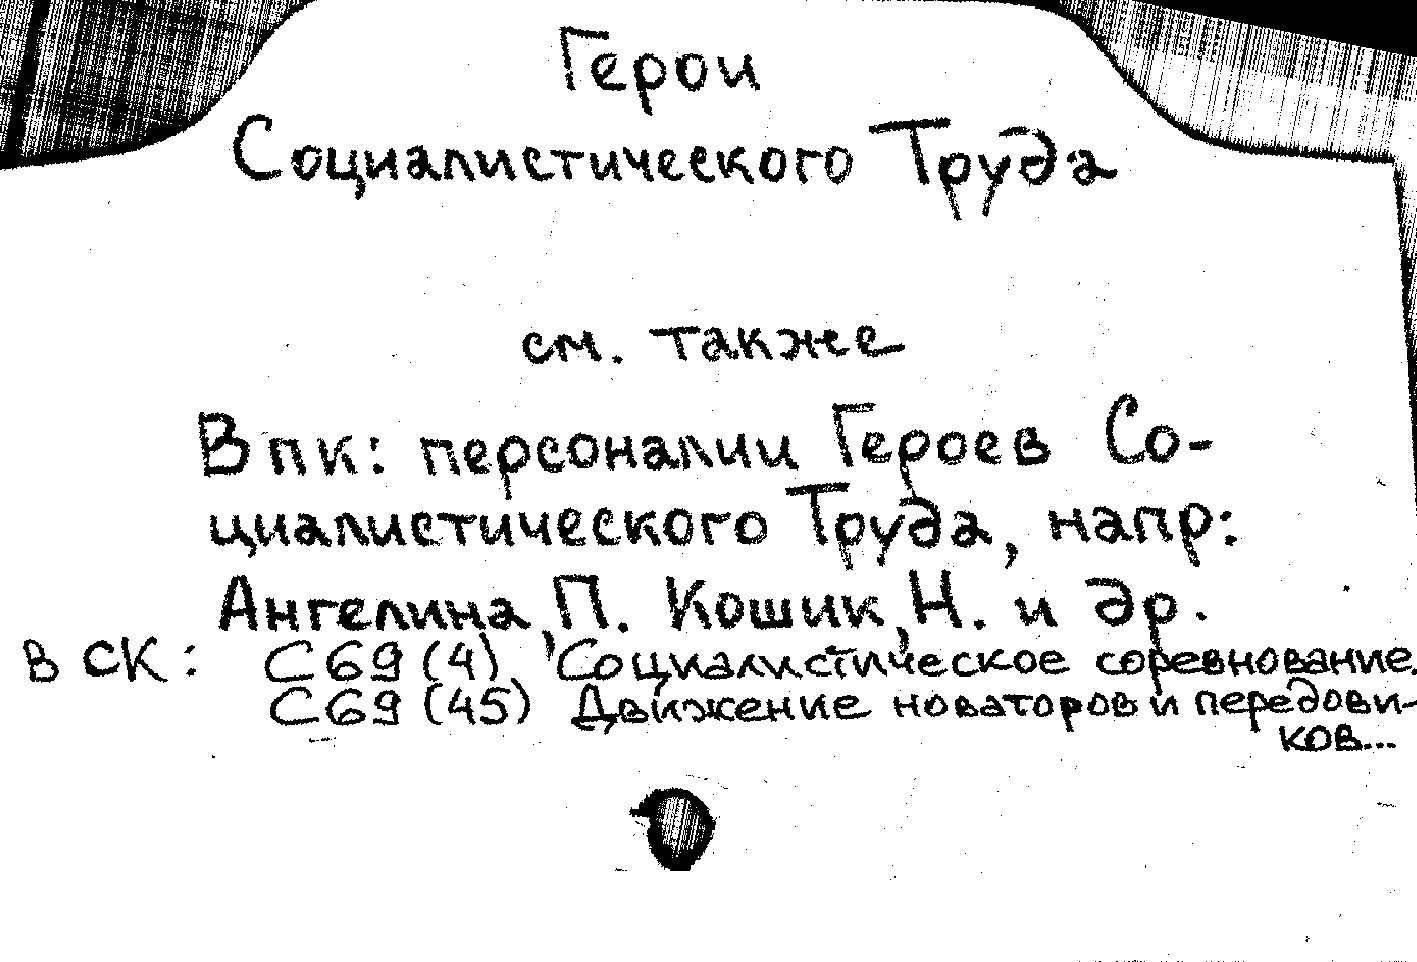 Герои
Социалистического Труда
см. также
В пк: персоналии Героев Со-
циалистического Труда, напр:
Ангелина, П. Кошик, Н. и др.
В СК: С69(4) Социалистическое соревнование.
С69(45) Движение новаторов и передови-
ков...